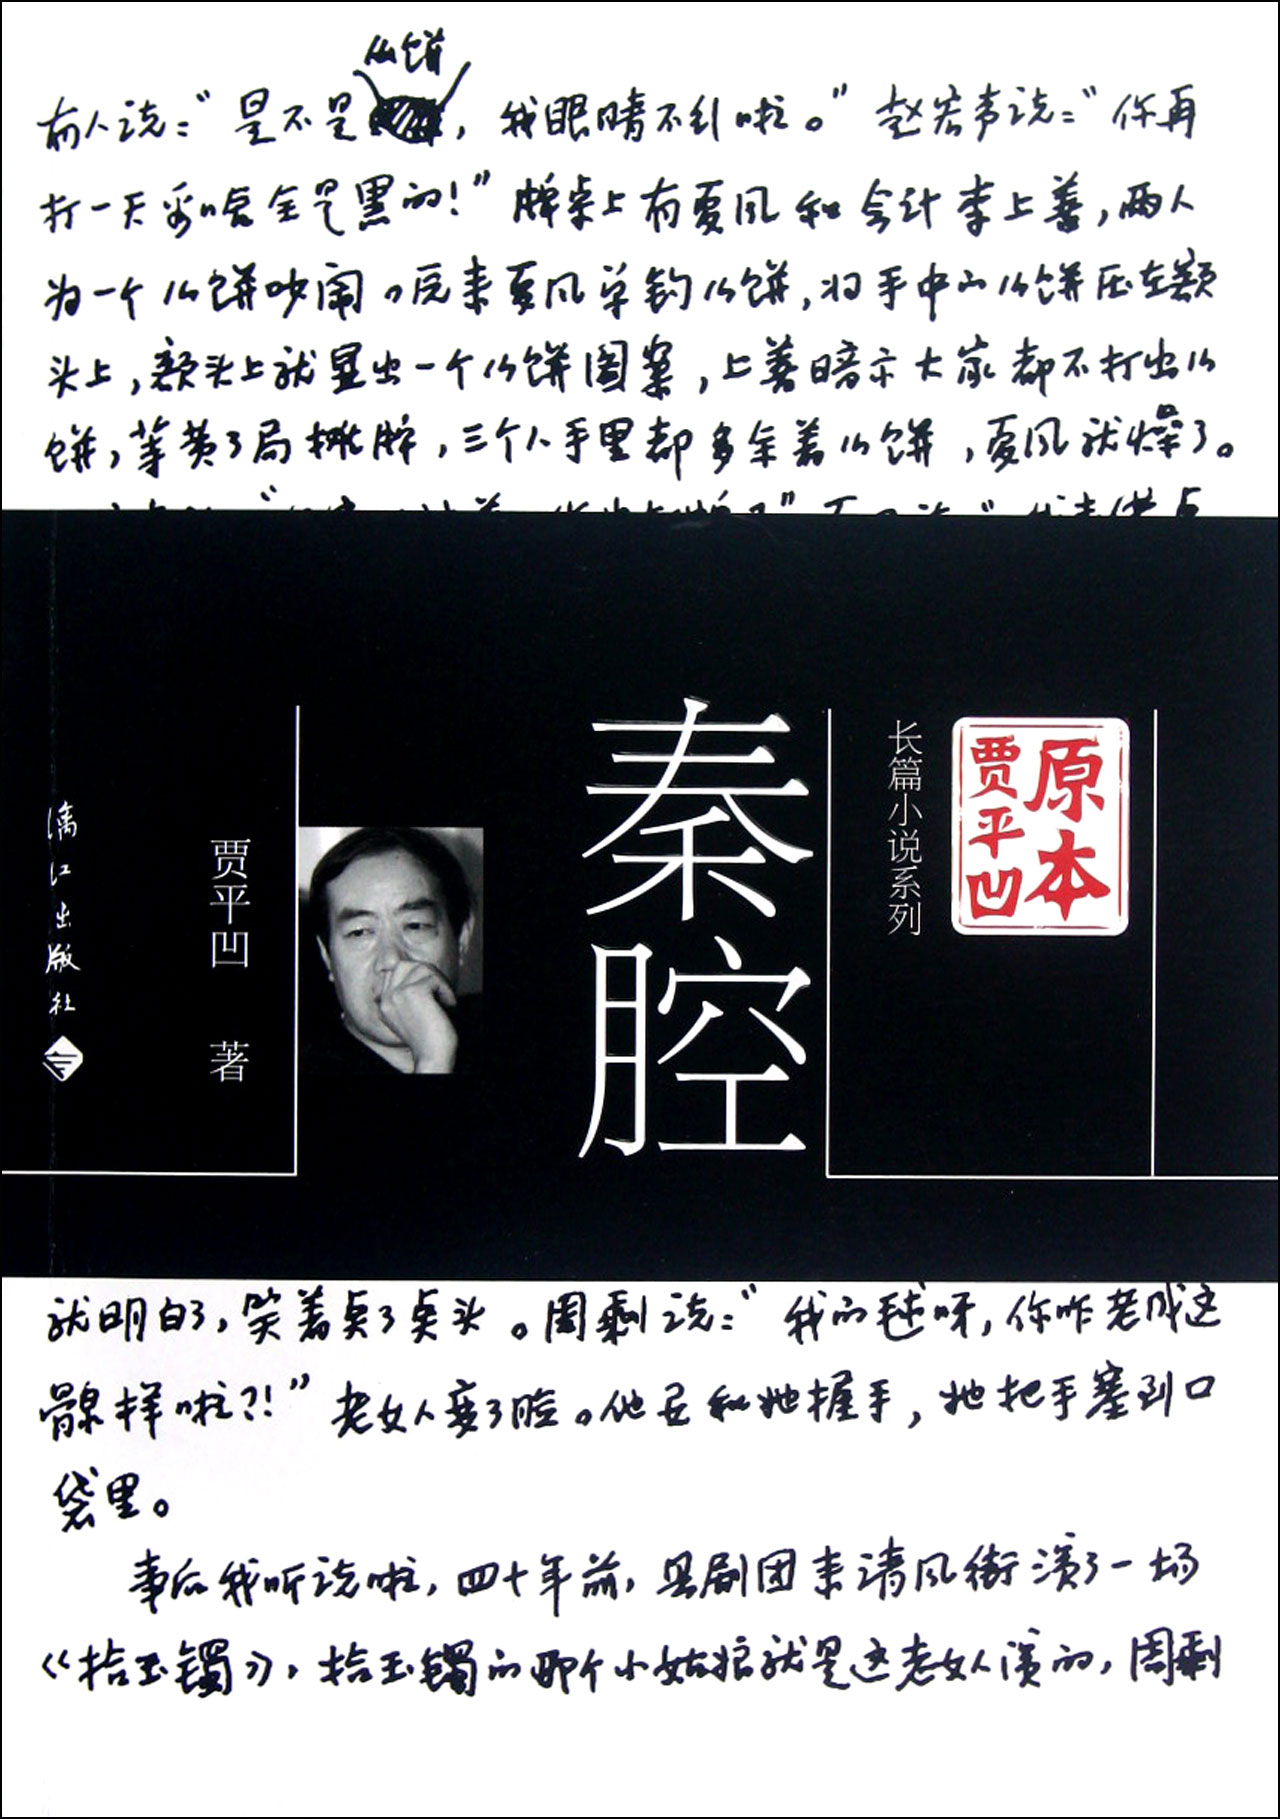 八饼
有人说："是不是，我眼睛不行啦。"赵宏声说："你再
打一天彩啥全是黑的！"牌桌上有夏风和会计李上善，两人
为一个八饼吵闹。原来夏风单钓八饼，将手中的八饼压在额
头上，额头上就显出一个八饼图案，上善暗示大家都不打出八
饼，等黄了局摊牌，三个人手里都多余着八饼，夏风就燥了。
秦腔
长篇小说系列
原本
贾平凹
贾平凹 著
漓江出版社
就明白了，笑着点了点头。周剩说："我的毬呀，你咋老成这
样啦?!"老女人变了脸。他要和她握手，她把手塞到口
袋里。
事后我听说啦，四十年前，县剧团来清风街演了一场
《拾玉镯》，拾玉镯的那个小姑娘就是这老女人演的，周剩